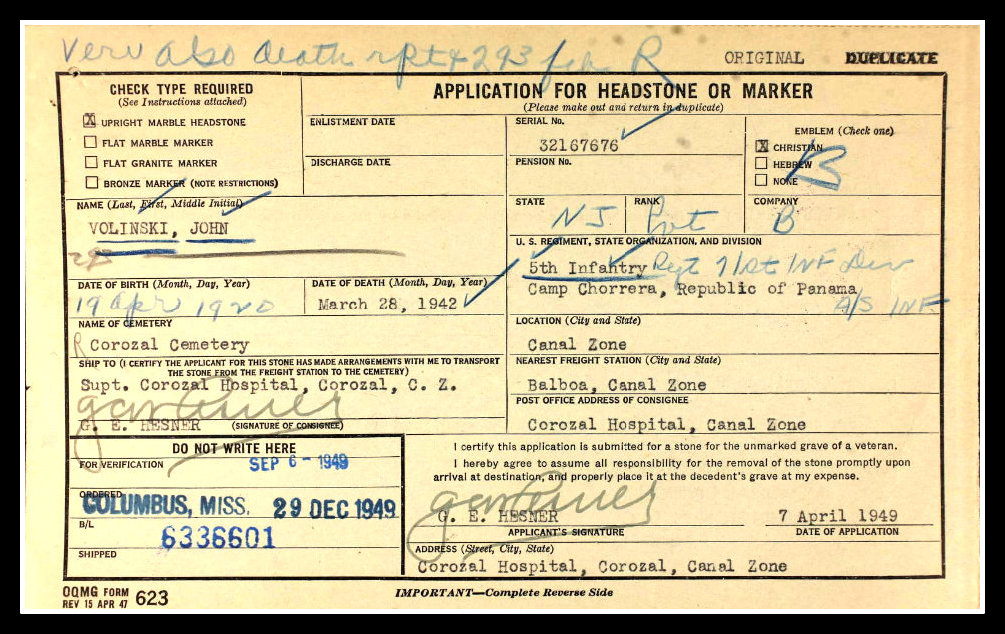 Veru also death rpt 4293 feb. R
ORIGINAL DUPLICATE
CHECK TYPE REQUIRED
(See Instructions attached)
X UPRIGHT MARBLE HEADSTONE
FLAT MARBLE MARKER
FLAT GRANITE MARKER
BRONZE MARKER (NOTE RESTRICTIONS)
APPLICATION FOR HEADSTONE OR MARKER
(Please make out and return in duplicate)
ENLISTMENT DATE
DISCHARGE DATE
SERIAL No.
32167676
PENSION No.
EMBLEM (Check one)
X CHRISTIAN
HEBREW
NONE
B
NAME (Last, First, Middle Initial)
VOLINSKI, JOHN
293
STATE
NJ
RANK
Pvt
COMPANY
B
U. S. REGIMENT, STATE ORGANIZATION, AND DIVISION
5th Infantry Regt 71st INF Div
Camp Chorrera, Republic of Panama
A/S INF
DATE OF BIRTH (Month, Day, Year)
19 apr 1920
DATE OF DEATH (Month, Day, Year)
March 28, 1942
NAME OF CEMETERY
R Corozal Cemetery
LOCATION (City and State)
Canal Zone
SHIP TO (I CERTIFY THE APPLICANT FOR THIS STONE HAS MADE ARRANGEMENTS WITH ME TO TRANSPORT
THE STONE FROM THE FREIGHT STATION TO THE CEMETERY)
Supt. Corozal Hospital, Corozal, C. Z.
NEAREST FREIGHT STATION (City and State)
Balboa, Canal Zone
POST OFFICE ADDRESS OF CONSIGNEE
Corozal Hospital, Canal Zone
G. E. HESNER (SIGNATURE OF CONSIGNEE)
DO NOT WRITE HERE
FOR VERIFICATION
SEP 6 - 1949
ORDERED
COLUMBUS, MISS. 29 DEC 1949
B/L
6336601
SHIPPED
I certify this application is submitted for a stone for the unmarked grave of a veteran.
I hereby agree to assume all responsibility for the removal of the stone promptly upon
arrival at destination, and properly place it at the decedent's grave at my expense.
G. E. HESNER
APPLICANT'S SIGNATURE
7 April 1949
DATE OF APPLICATION
ADDRESS (Street, City, State)
Corozal Hospital, Corozal, Canal Zone
OQMG FORM
REV 15 APR 47 623
IMPORTANT—Complete Reverse Side